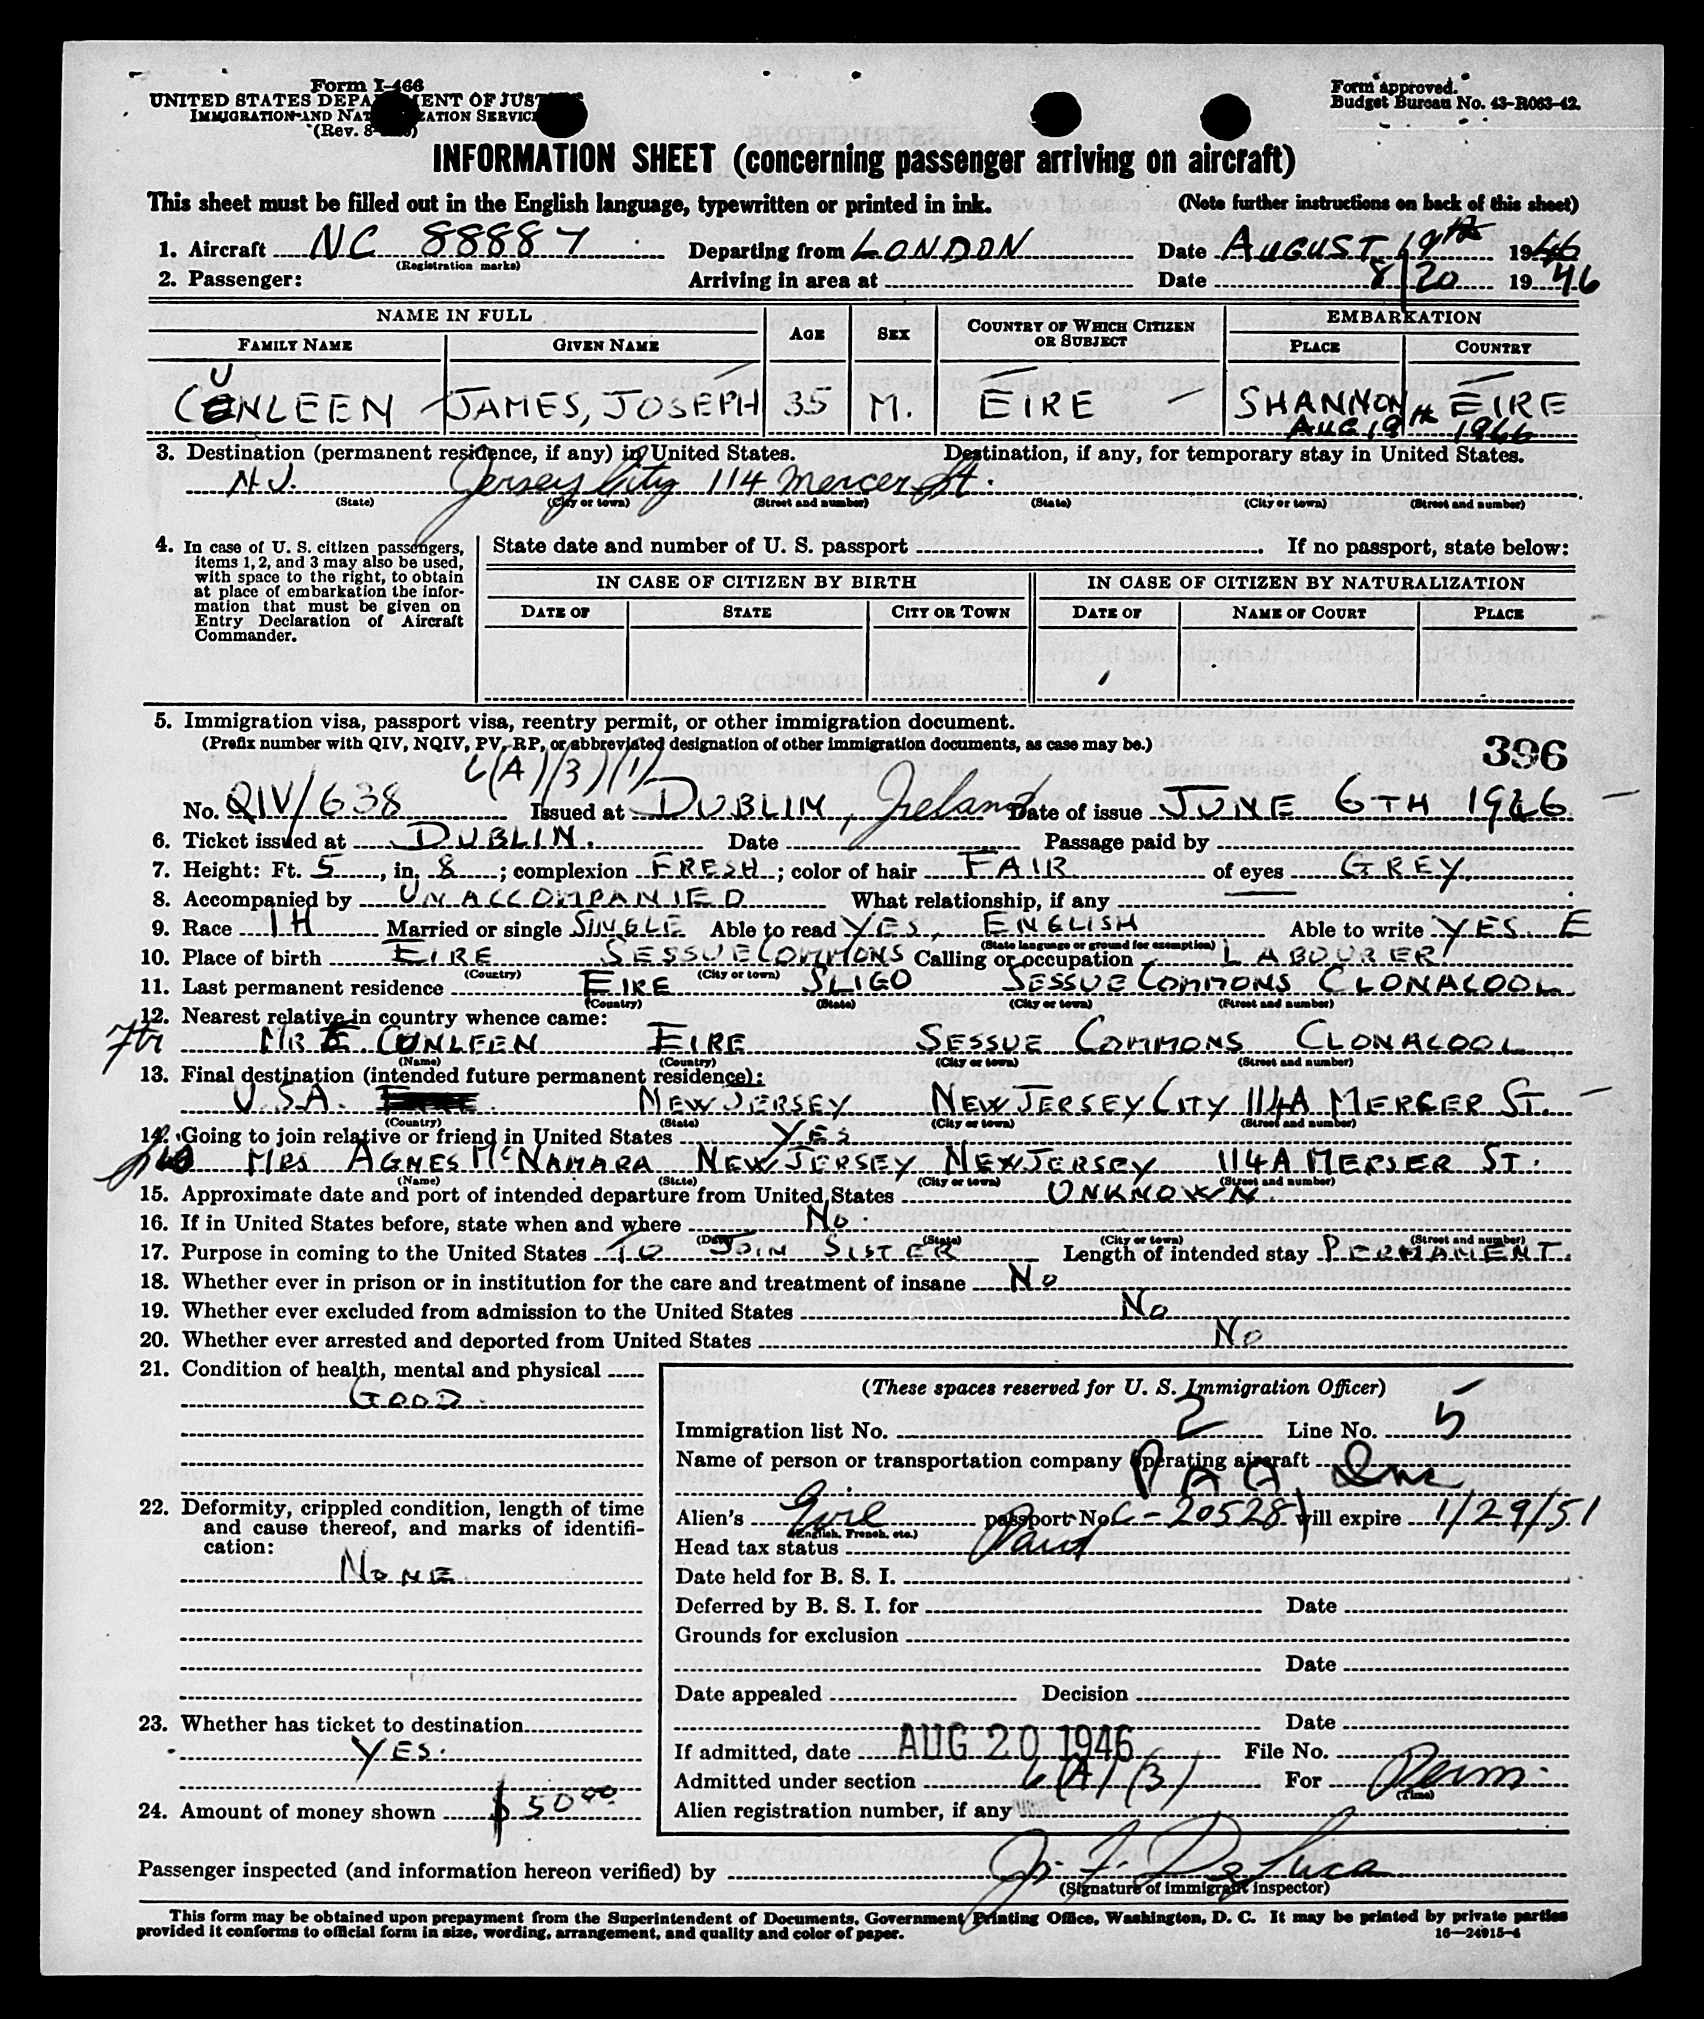 Form I-466
UNITED STATES DEPA ENT OF JUS
IMMIGRATION AND NAT ZATION SERVIC
(Rev. 8-
Form approved.
Budget Bureau No. 43-R063-42.
INFORMATION SHEET (concerning passenger arriving on aircraft)
This sheet must be filled out in the English language, typewritten or printed in ink. (Note further instructions on back of this sheet)
1. Aircraft NC 88887 Departing from LONDON Date AUGUST 19th 1946
(Registration marks)
2. Passenger: Arriving in area at Date 8/20 1946
NAME IN FULL AGE SEX COUNTRY OF WHICH CITIZEN OR SUBJECT EMBARKATION
FAMILY NAME GIVEN NAME PLACE COUNTRY
U
CONLEEN JAMES, JOSEPH 35 M. EIRE SHANNON EIRE
AUG 19th 1946
3. Destination (permanent residence, if any) in United States. Destination, if any, for temporary stay in United States.
N.J. Jersey City 114 Mercer St.
(State) (City or town) (Street and number) (State) (City or town) (Street and number)
4. In case of U. S. citizen passengers, items 1, 2, and 3 may also be used, with space to the right, to obtain at place of embarkation the information that must be given on Entry Declaration of Aircraft Commander.
State date and number of U. S. passport If no passport, state below:
IN CASE OF CITIZEN BY BIRTH IN CASE OF CITIZEN BY NATURALIZATION
DATE OF STATE CITY OR TOWN DATE OF NAME OF COURT PLACE
5. Immigration visa, passport visa, reentry permit, or other immigration document.
(Prefix number with QIV, NQIV, PV, RP, or abbreviated designation of other immigration documents, as case may be.)
396
6(A)(3)(1)
No. QIV/638 Issued at DUBLIN, Ireland Date of issue JUNE 6TH 1946
6. Ticket issued at DUBLIN. Date Passage paid by
7. Height: Ft. 5, in. 8; complexion FRESH; color of hair FAIR of eyes GREY.
8. Accompanied by UNACCOMPANIED What relationship, if any
9. Race IH Married or single SINGLE Able to read YES, ENGLISH Able to write YES. E
(State language or ground for exemption)
10. Place of birth EIRE SESSUE COMMONS Calling or occupation LABOURER
(Country) (City or town)
11. Last permanent residence EIRE SLIGO SESSUE COMMONS CLONACOOL
(Country) (State) (City or town) (Street and number)
12. Nearest relative in country whence came:
Ftr MR E. CUNLEEN EIRE SESSUE COMMONS CLONACOOL
(Name) (Country) (City or town) (Street and number)
13. Final destination (intended future permanent residence):
U.S.A. NEW JERSEY NEW JERSEY CITY 114A MERCER ST.
(Country) (State) (City or town) (Street and number)
14. Going to join relative or friend in United States YES
MRS AGNES McNAMARA NEW JERSEY NEW JERSEY 114A MERSER ST.
(Name) (State) (City or town) (Street and number)
15. Approximate date and port of intended departure from United States UNKNOWN.
16. If in United States before, state when and where No.
(Date) (State) (City or town) (Street and number)
17. Purpose in coming to the United States TO JOIN SISTER Length of intended stay PERMANENT.
18. Whether ever in prison or in institution for the care and treatment of insane No
19. Whether ever excluded from admission to the United States No
20. Whether ever arrested and deported from United States No
21. Condition of health, mental and physical
GOOD.
22. Deformity, crippled condition, length of time and cause thereof, and marks of identification:
NONE
23. Whether has ticket to destination
YES.
24. Amount of money shown $50.00
(These spaces reserved for U. S. Immigration Officer)
Immigration list No. 2 Line No. 5
Name of person or transportation company operating aircraft
PAA Inc
Alien's Eire passport No. C-20528 will expire 1/29/51
(English, French, etc.)
Head tax status Paid
Date held for B. S. I.
Deferred by B. S. I. for Date
Grounds for exclusion
Date
Date appealed Decision
Date
If admitted, date AUG 20 1946 File No.
Admitted under section 6(A)(3) For Perm.
(Time)
Alien registration number, if any
Passenger inspected (and information hereon verified) by J. F. DeLuca
(Signature of immigrant inspector)
This form may be obtained upon prepayment from the Superintendent of Documents, Government Printing Office, Washington, D. C. It may be printed by private parties
provided it conforms to official form in size, wording, arrangement, and quality and color of paper. 16—24915-4